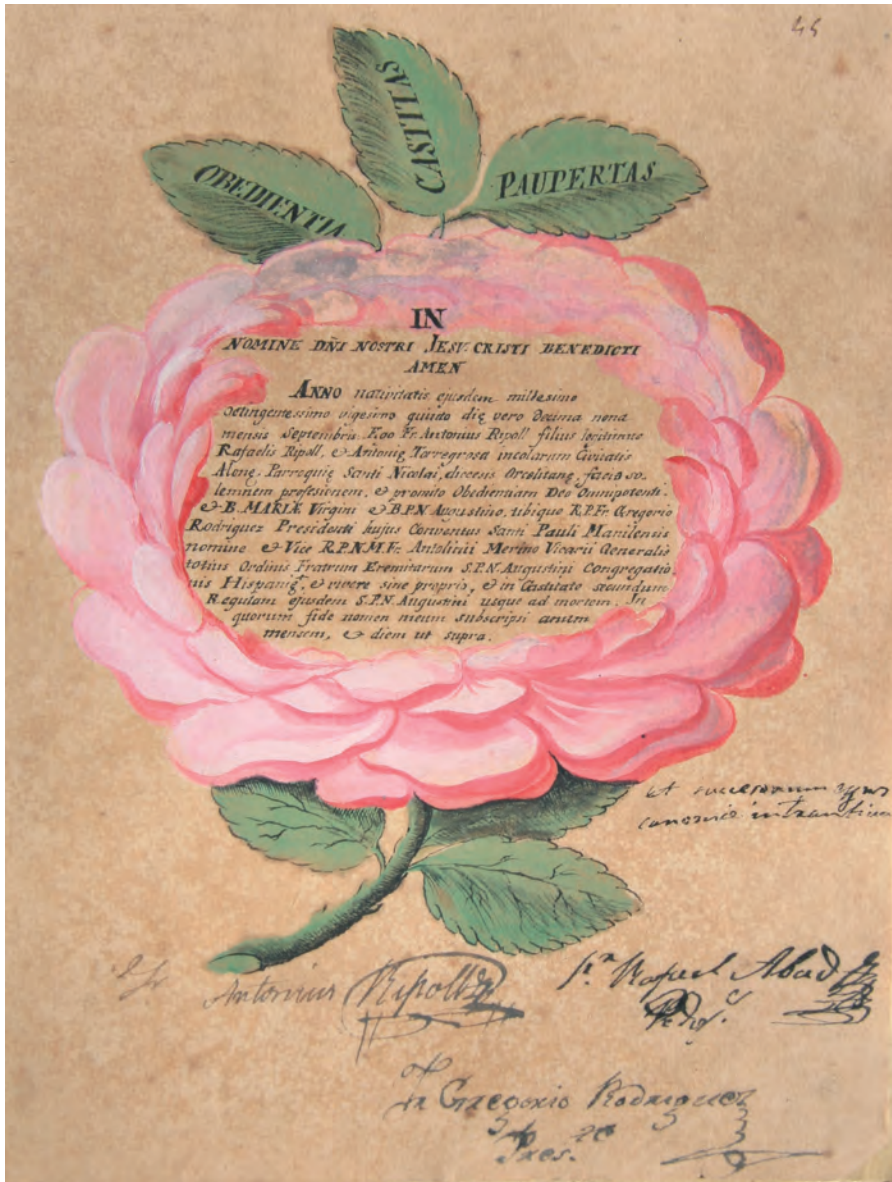 44
OBEDIENTIA
CASTITAS
PAUPERTAS
IN
NOMINE DÑI NOSTRI JESU CRISTI BENEDICTI
AMEN
ANNO nativitatis ejusdem millesimo
octingentessimo vigesimo quinto die vero Decima nona
mensis Septembris. Ego Fr. Antonius Ripoll filius legitimus
Rafaelis Ripoll, & Antonię Torregrosa incolarum Civitatis
Alonę. Parrequię Santi Nicolai, diecesis Orcelitanę, facio so-
lemnem profesionem, & promito Obedientiam Deo Omnipotenti.
& B. MARIÆ Virgini & B.P.N Augustino, tibique R.P.Fr. Gregorio
Rodriguez Presidenti hujus Conventus Santi Pauli Manilensis
nomine & Vice R.P.N.M.Fr. Antolinii Merino Vicarii Generalis
totius Ordinis Fratrum Eremitarum S.P.N. Augustini Congregatio-
nis Hispanię. & vivere sine proprio, & in Castitate secundum
Regulam ejusdem S.P.N. Augustini usque ad mortem. In
quorum fide nomen meum subscripsi anum
mensem, & diem ut supra.
et successorum ejus
canonice intrantium
Fr Antonius Ripoll
Fr. Rafael Abad
Fr Gregorio Rodriguez
Pres.te